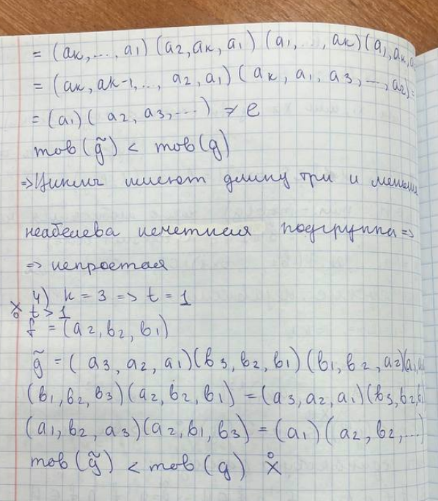 = (aₖ, ..., a₁) (a₂, aₖ, a₁) (a₁, ..., aₖ) (a₁, aₖ, a
= (aₖ, aₖ₋₁, ..., a₂, a₁) (aₖ, a₁, a₃, ..., a₂) =
= (a₁) (a₂, a₃, ...) ≠ e
mov(g̃) < mov(g)
=> Циклы имеют длину три и меньше
неабелева нечетная подгруппа =>
=> непростая
4) k = 3 => t = 1
t > 1
f = (a₂, b₂, b₁)
g̃ = (a₃, a₂, a₁)(b₃, b₂, b₁)(b₁, b₂, a₂)(a₁,
(b₁, b₂, b₃)(a₂, b₂, b₁) = (a₃, a₂, a₁)(b₃, b₂,
(a₁, b₂, a₃)(a₂, b₁, b₃) = (a₁)(a₂, b₂, ...)
mov(g̃) < mov(g)